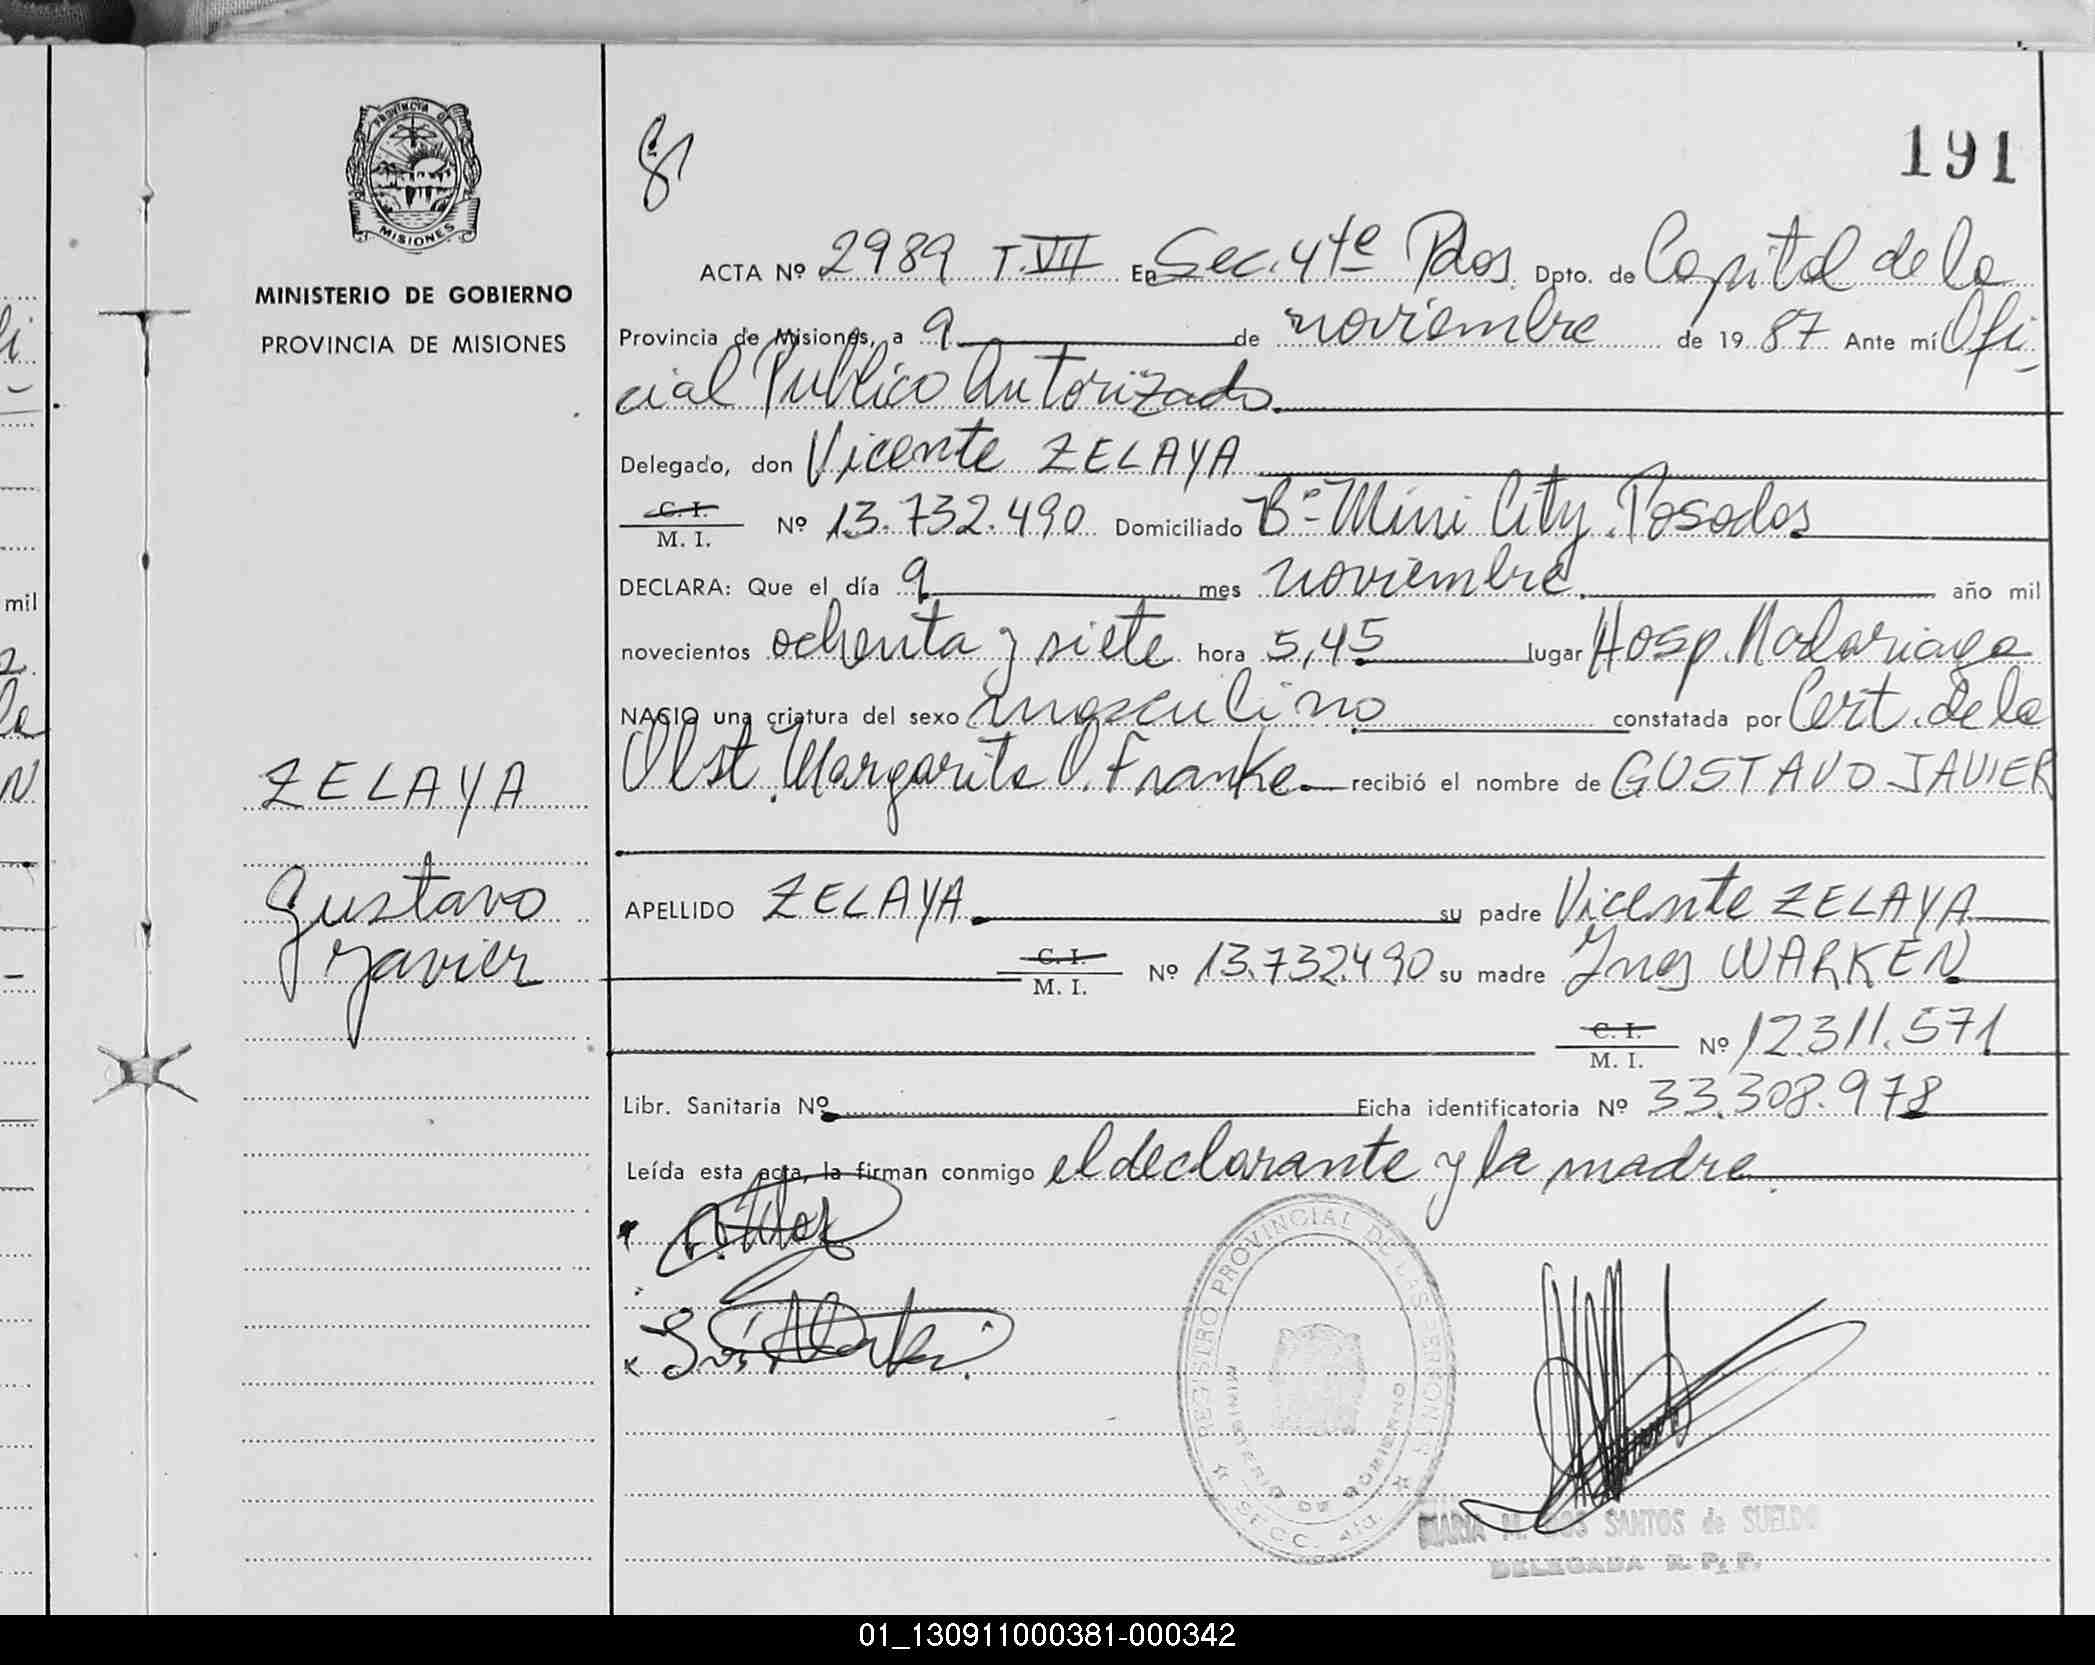 191
PROVINCIA DE
MISIONES
MINISTERIO DE GOBIERNO
PROVINCIA DE MISIONES
ACTA Nº 2989 T.VII En Sec. 4te Pdas. Dpto. de Capital de la
Provincia de Misiones, a 9 de noviembre de 1987 Ante mí Ofi-
cial Publico Autorizado
Delegado, don Vicente ZELAYA
C. I.
M. I. Nº 13.732.490 Domiciliado Bº Mini City. Posadas
DECLARA: Que el día 9 mes noviembre año mil
novecientos ochenta y siete hora 5,45 lugar Hosp. Madariaga
NACIO una criatura del sexo masculino constatada por Cert. de la
Obst. Margarita O. Franke recibió el nombre de GUSTAVO JAVIER
ZELAYA
Gustavo
Javier
APELLIDO ZELAYA su padre Vicente ZELAYA
C. I.
M. I. Nº 13.732.490 su madre Ines WARKEN
C. I.
M. I. Nº 12.311.571
Libr. Sanitaria Nº Ficha identificatoria Nº 33.308.978
Leída esta acta, la firman conmigo el declarante y la madre
REGISTRO PROVINCIAL DE LAS PERSONAS
MINISTERIO DE GOBIERNO
SECC. 4ta.
MARIA M. DOS SANTOS de SUELDO
DELEGADA R. P. P.
mil
01_130911000381-000342